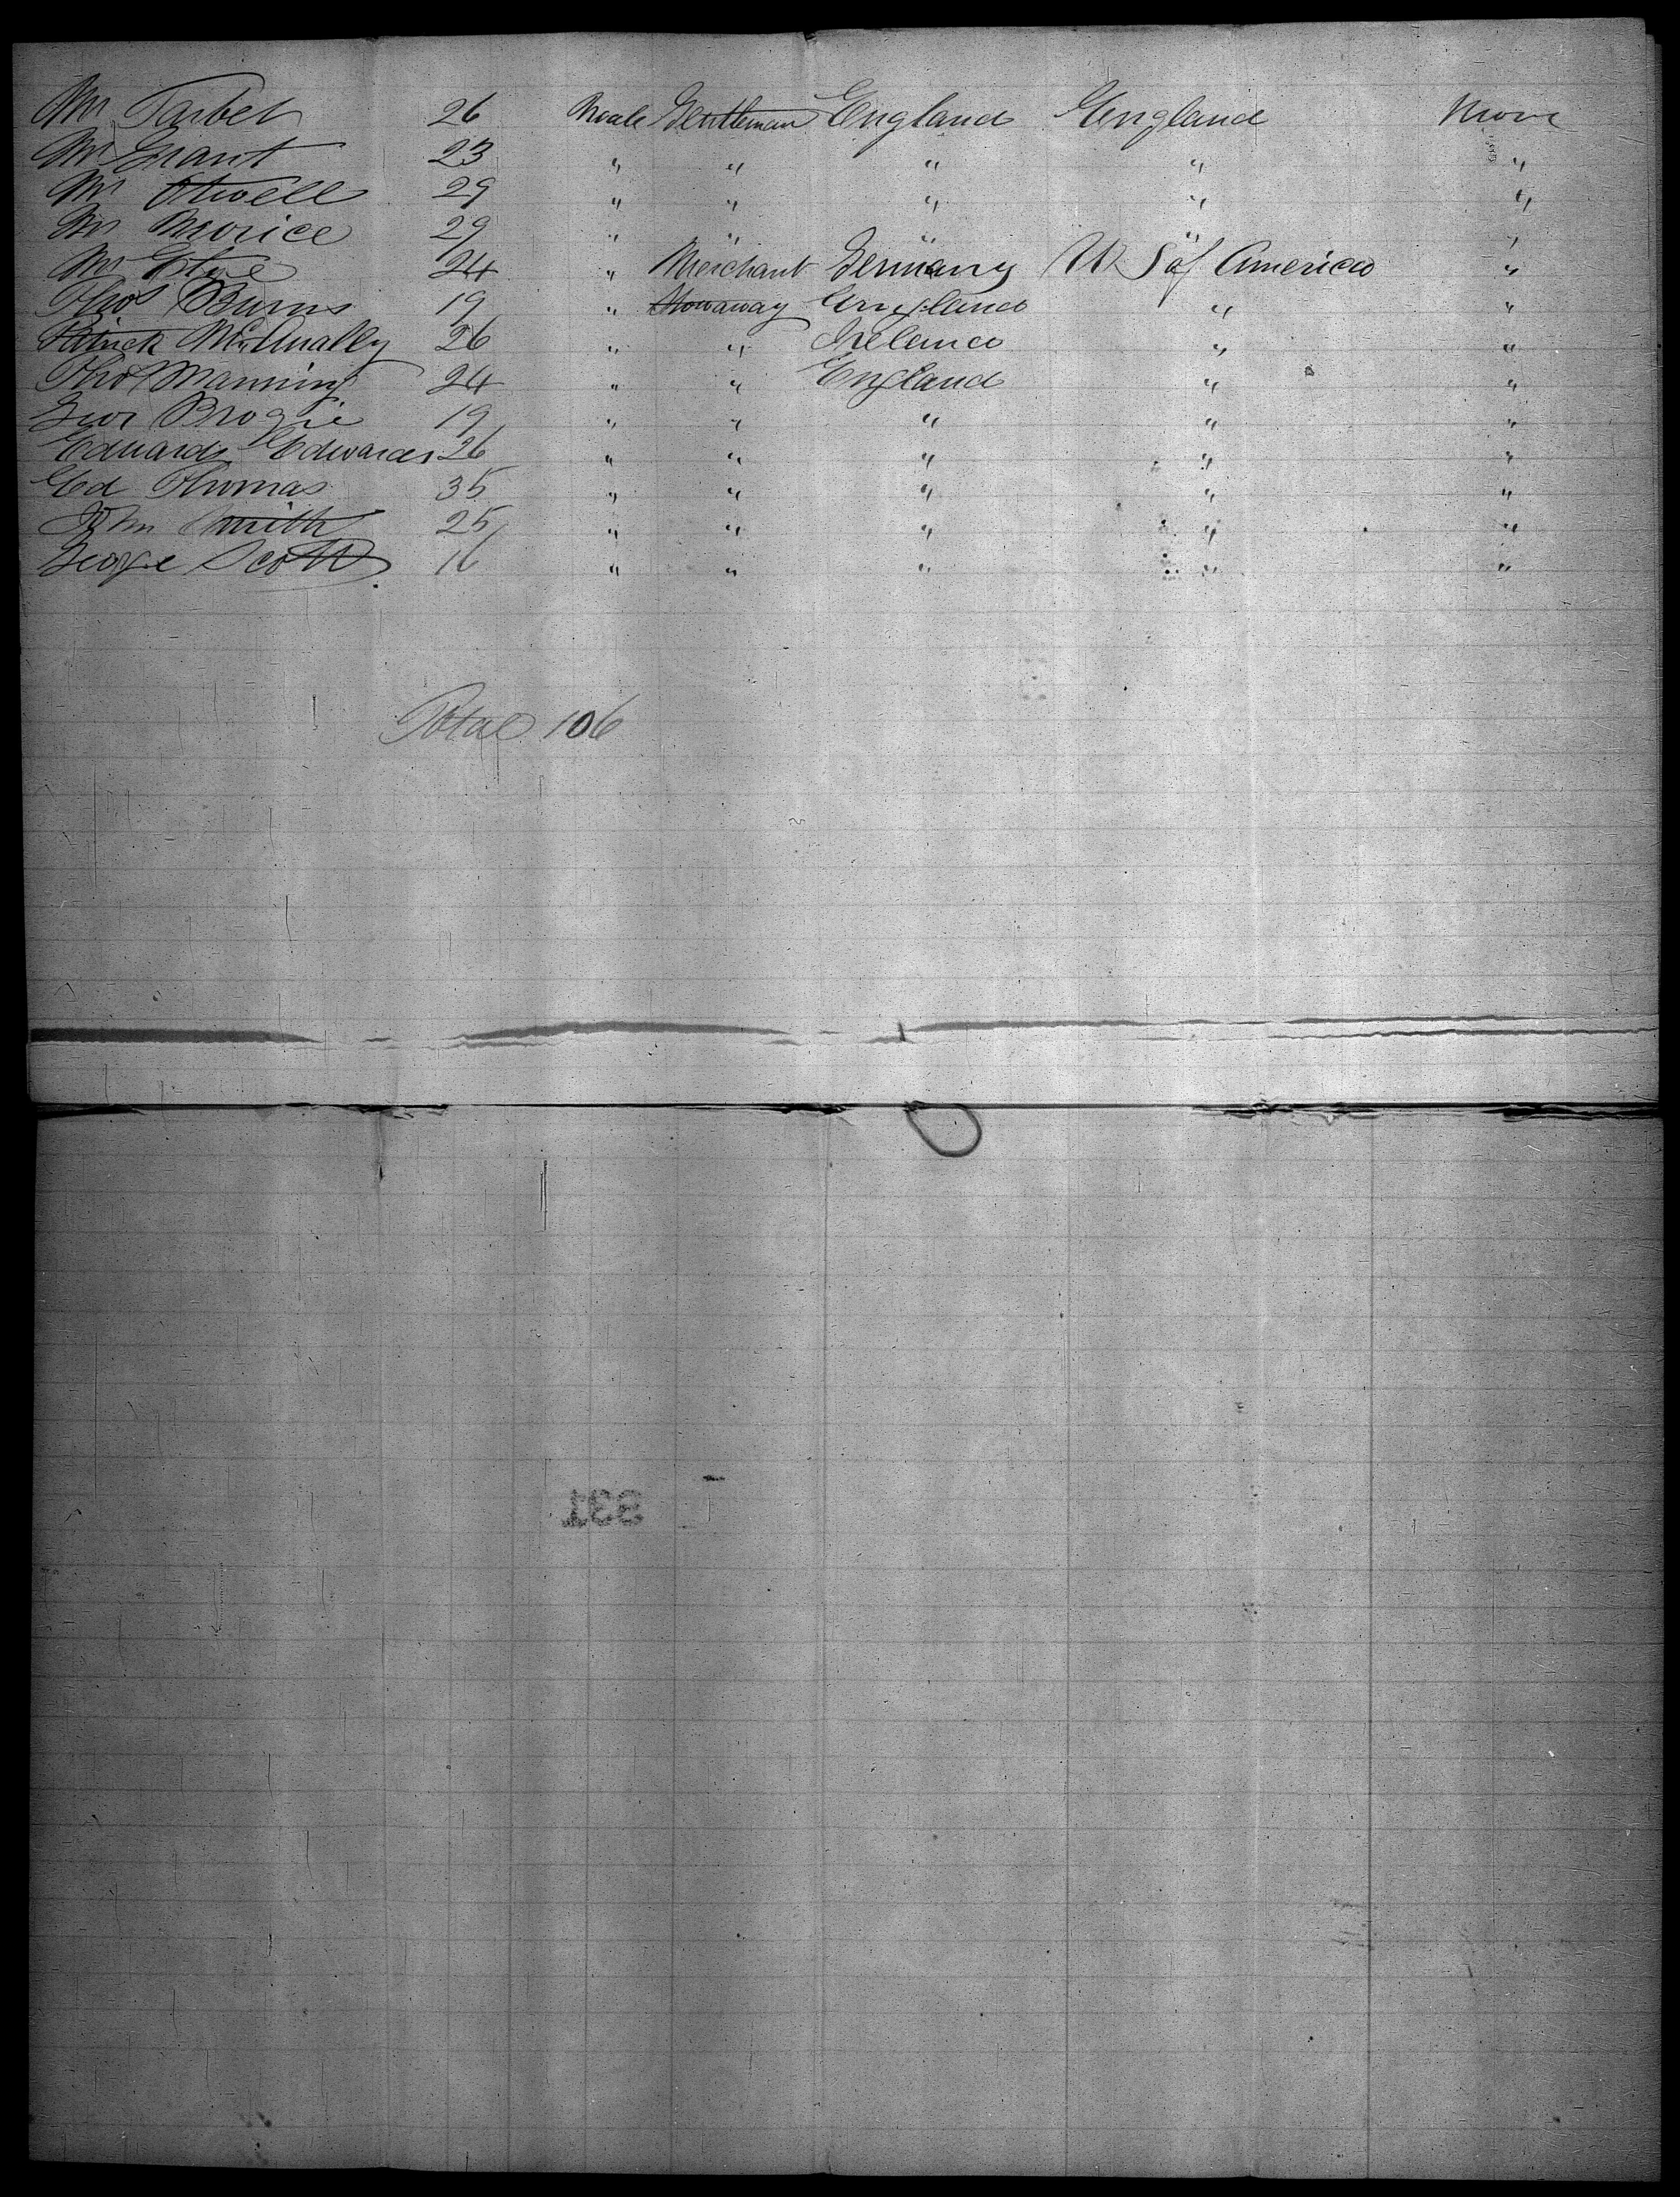 Mr Tarbet 26 Male Gentleman England England None
Mr Grant 23 " " " " "
Mr Atwell 29 " " " " "
Mr Morice 29 " " " " "
Mr 24 " Merchant Germany U S of America "
Thos Burns 19 " Stowaway England " "
Patrick McAnally 26 " " Ireland " "
Thos Manning 24 " " England " "
Geor Brogie 19 " " " " "
Edward Edwards 26 " " " " "
Ed Thomas 35 " " " " "
John Smith 25 " " " " "
George Scott 16 " " " " "
Total 106
331